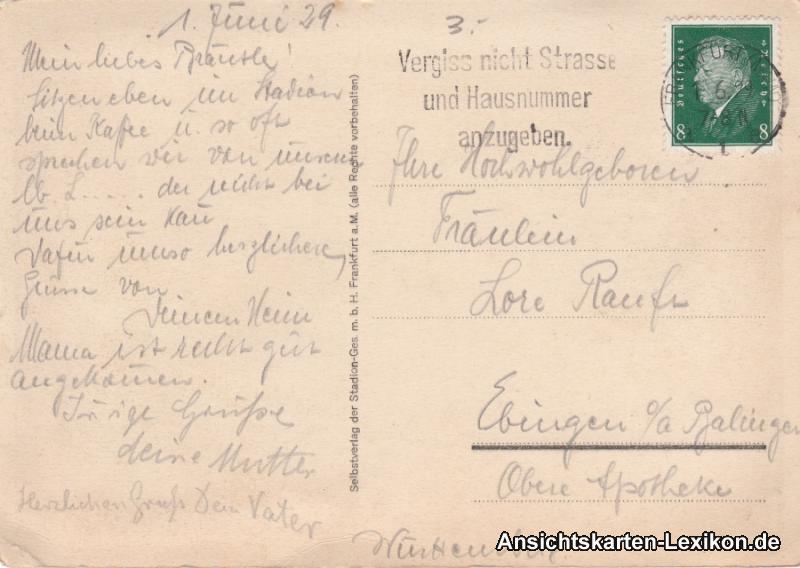 1. Juni 29.
Mein liebes Bräutle!
Sitzen eben im Stadion
beim Kaffee u. so oft
sprechen wir von unserer
lb. L..... der nicht bei
uns sein kan
Dafür umso herzlichere,
Grüsse von
Deinem Heim
Mama ist recht gut
angekommen.
Grüße
deine Mutter
Herzlichen Gruß Dein Vater
Selbstverlag der Stadion-Ges. m. b. H. Frankfurt a. M. (alle Rechte vorbehalten)
3.-
Vergiss nicht Strasse
und Hausnummer
anzugeben.
Deutsches Reich
8 8
Ihre Hochwohlgeboren
Fräulein
Lore
Ebingen o/a Balingen
Obere Apotheke
Württemberg
Ansichtskarten-Lexikon.de